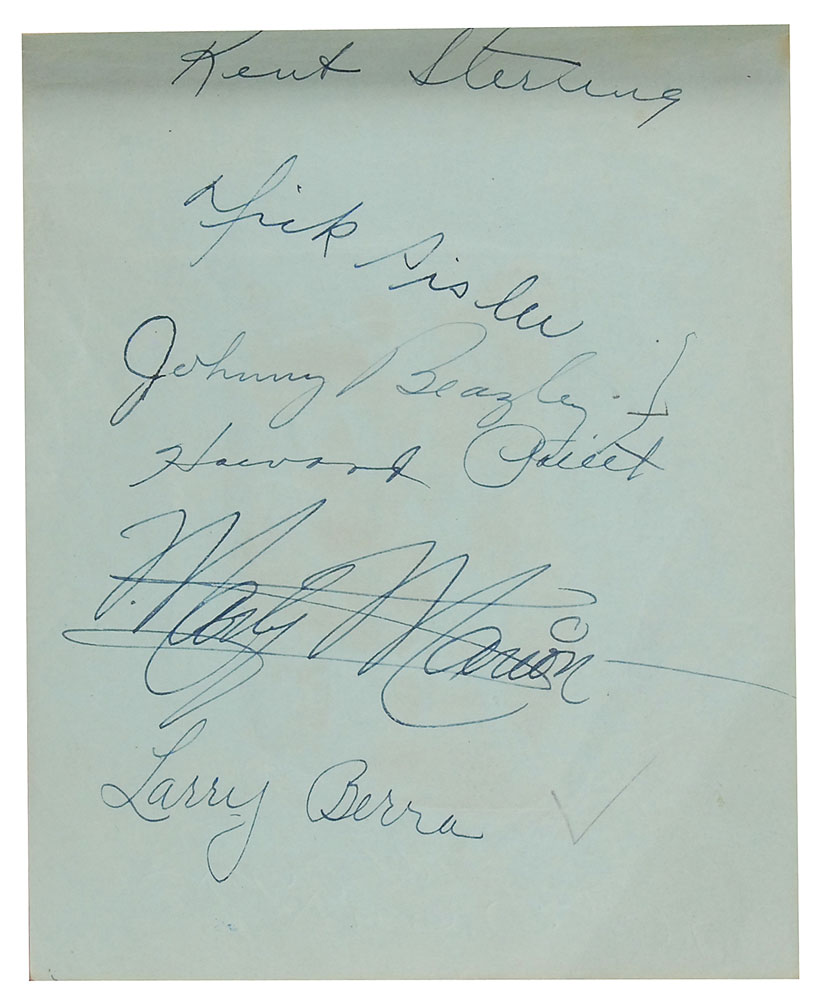 Kent Sterling
Dick Sisler
Johnny Beazley
Howard Pollet
Marty Marion
Larry Berra